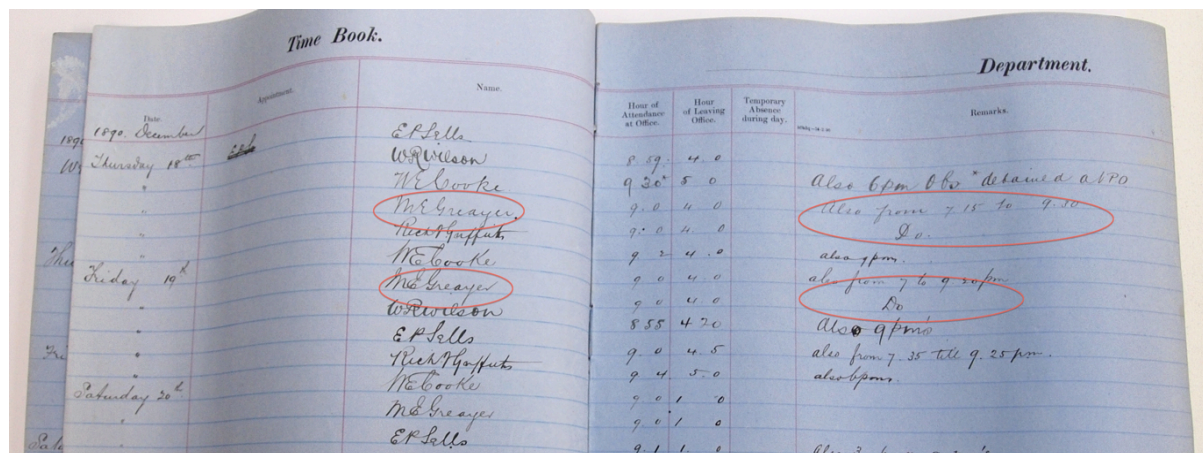 Time Book.
Department.
Date.
Appointment.
Name.
Hour of Attendance at Office.
Hour of Leaving Office.
Temporary Absence during day.
Remarks.
1890. December
E P Sells
Thursday 18th
W R Wilson 8 59. 4. 0
" W E Cooke 9 30* 5 0 Also 6pm Obs * detained at PO
" M E Greayer. 9. 0 4 0 Also from 7 15 to 9.30
" Rich F Griffiths 9. 0 4. 0 Do.
W E Cooke 9 2 4. 0 also 9pm.
Friday 19th M E Greayer 9 0 4 0 also from 7 to 9.20pm
" W R Wilson 9 0 4. 0 Do
" E P Sells 8 55 4 20 Also 9pms
" Rich F Griffiths 9. 0 4. 5 also from 7.35 till 9.25pm.
Saturday 20th W E Cooke 9 4 5. 0 also 6pms.
" M E Greayer 9 0 1 0
" E P Sells 9 0 1 0